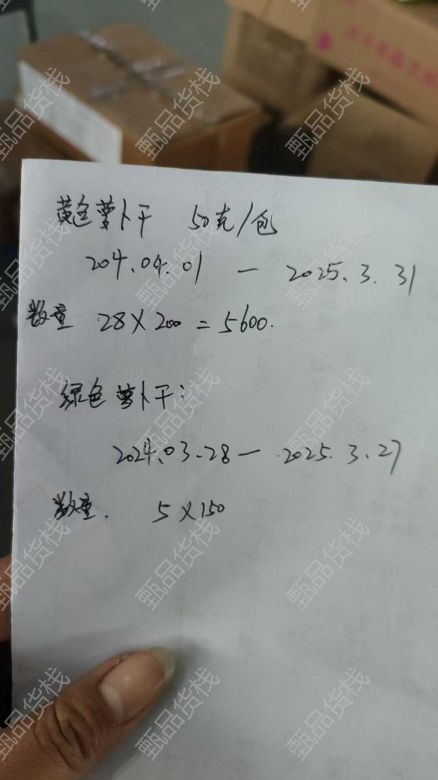 黄色萝卜干 50克/包
204.04.01 — 2025.3.31
数量 28×200=5600.
绿色萝卜干:
2024.03.28— 2025.3.27
数量. 5×150
甄品货栈